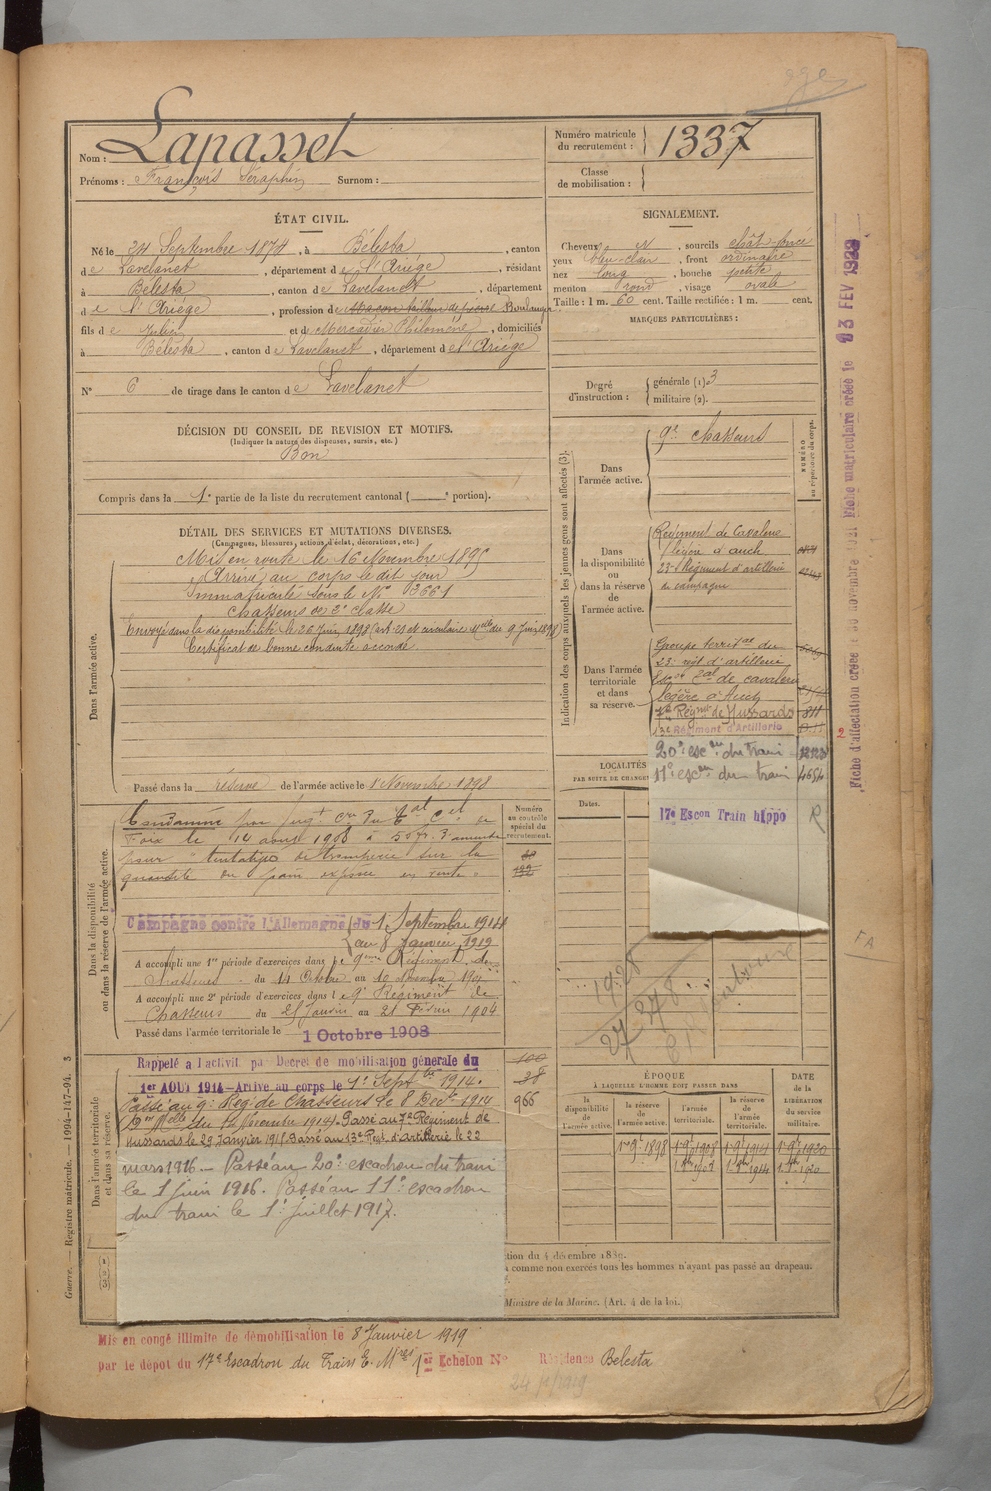 Nom : Lapasset
Prénoms : François Séraphin Surnom :
Numéro matricule du recrutement : 1337
Classe de mobilisation :
ÉTAT CIVIL.
Né le 24 Septembre 1874, à Bélesta, canton
de Lavelanet, département de l'Ariége, résidant
à Bélesta, canton de Lavelanet, département
de l'Ariége, profession de Maçon tailleur de pierres Boulanger
fils de Julien et de Mercadier Philomène, domiciliés
à Bélesta, canton de Lavelanet, département de l'Ariége
N° 6 de tirage dans le canton de Lavelanet
SIGNALEMENT.
Cheveux N, sourcils chât-foncé
yeux bleu-clair, front ordinaire
nez long, bouche petite
menton rond, visage ovale
Taille : 1 m. 60 cent. Taille rectifiée : 1 m. cent.
MARQUES PARTICULIÈRES :
Degré d'instruction : générale (1). 3
militaire (2).
DÉCISION DU CONSEIL DE REVISION ET MOTIFS.
(Indiquer la nature des dispenses, sursis, etc.)
Bon
Compris dans la 1e partie de la liste du recrutement cantonal ( e portion).
DÉTAIL DES SERVICES ET MUTATIONS DIVERSES.
(Campagnes, blessures, actions d'éclat, décorations, etc.)
Dans l'armée active.
Mis en route le 16 Novembre 1895
Arrivé au corps le dit jour
Immatriculé sous le N° 3661
chasseurs de 2e classe
Envoyé dans la disponibilité le 20 Juin 1898 (art. 21 et circulaire elle du 9 Juin 1898)
Certificat de bonne conduite accordé.
Passé dans la réserve de l'armée active le 1er Novembre 1898
Indication des corps auxquels les jeunes gens sont affectés (3).
NUMÉRO au répertoire du corps.
Dans l'armée active.
9e chasseurs
Dans la disponibilité ou dans la réserve de l'armée active.
Régiment de Cavalerie
légère d'auch
23e Régiment d'artillerie
en campagne
Dans l'armée territoriale et dans sa réserve.
Groupe territal du
23e régt d'artillerie
de cavalerie
légère d'Auch
7e Régiment de Hussards 811
13e Régiment d'Artillerie
20e escon du train
11e escon du train 4654
17e Escon Train hippo R
LOCALITÉS
PAR SUITE DE CHANGE
Dates.
Dans la disponibilité ou dans la réserve de l'armée active.
Numéro au contrôle spécial du recrutement.
Condamné par jugt
Foix le 14 août 1908 à 50 fr. d'amende
pour "tentative de tromperie sur la
quantité du pain exposé en vente".
Campagne contre l'Allemagne (du 1 Septembre 1914
au 8 Janvier 1919
A accompli une 1re période d'exercices dans le 9eme Régiment de
Chasseurs du 14 Octobre au 10 Novembre 1901
A accompli une 2e période d'exercices dans le 9e Régiment de
Chasseurs du 25 Janvier au 21 Février 1904
Passé dans l'armée territoriale le 1 Octobre 1908
Dans l'armée territoriale et dans sa réserve.
Rappelé à l'activité par Décret de mobilisation générale du
1er AOUT 1914 — Arrivé au corps le 1er Septbre 1914.
Passé au 9e Reg. de Chasseurs le 8 Decbre 1914
Passé au 7e Régiment de
Hussards le 29 Janvier 1915 Passé au 13e Regt. d'Artillerie le 22
mars 1916 — Passé au 20e escadron du train
le 1 juin 1916. Passé au 11e escadron
du train le 1er juillet 1917.
100
38
966
1928
27
278
ÉPOQUE
À LAQUELLE L'HOMME DOIT PASSER DANS
la disponibilité de l'armée active.
la réserve de l'armée active.
l'armée territoriale.
la réserve de l'armée territoriale.
DATE de la LIBÉRATION du service militaire.
1 9bre 1898 1 9bre 1908 1 9bre 1914 1 9bre 1920
tion du 4 décembre 1889.
comme non exercés tous les hommes n'ayant pas passé au drapeau.
Ministre de la Marine. (Art. 4 de la loi.)
Mis en congé illimité de démobilisation le 8 Janvier 1919
par le dépôt du 17e Escadron du Train E. M 1er Echelon N° Résidence Belesta
Guerre. — Registre matricule. — 1094-147-94. 3
Fiche d'affectation créée le novembre 1921 Fiche matriculaire créée le 23 FEV 1929
FA